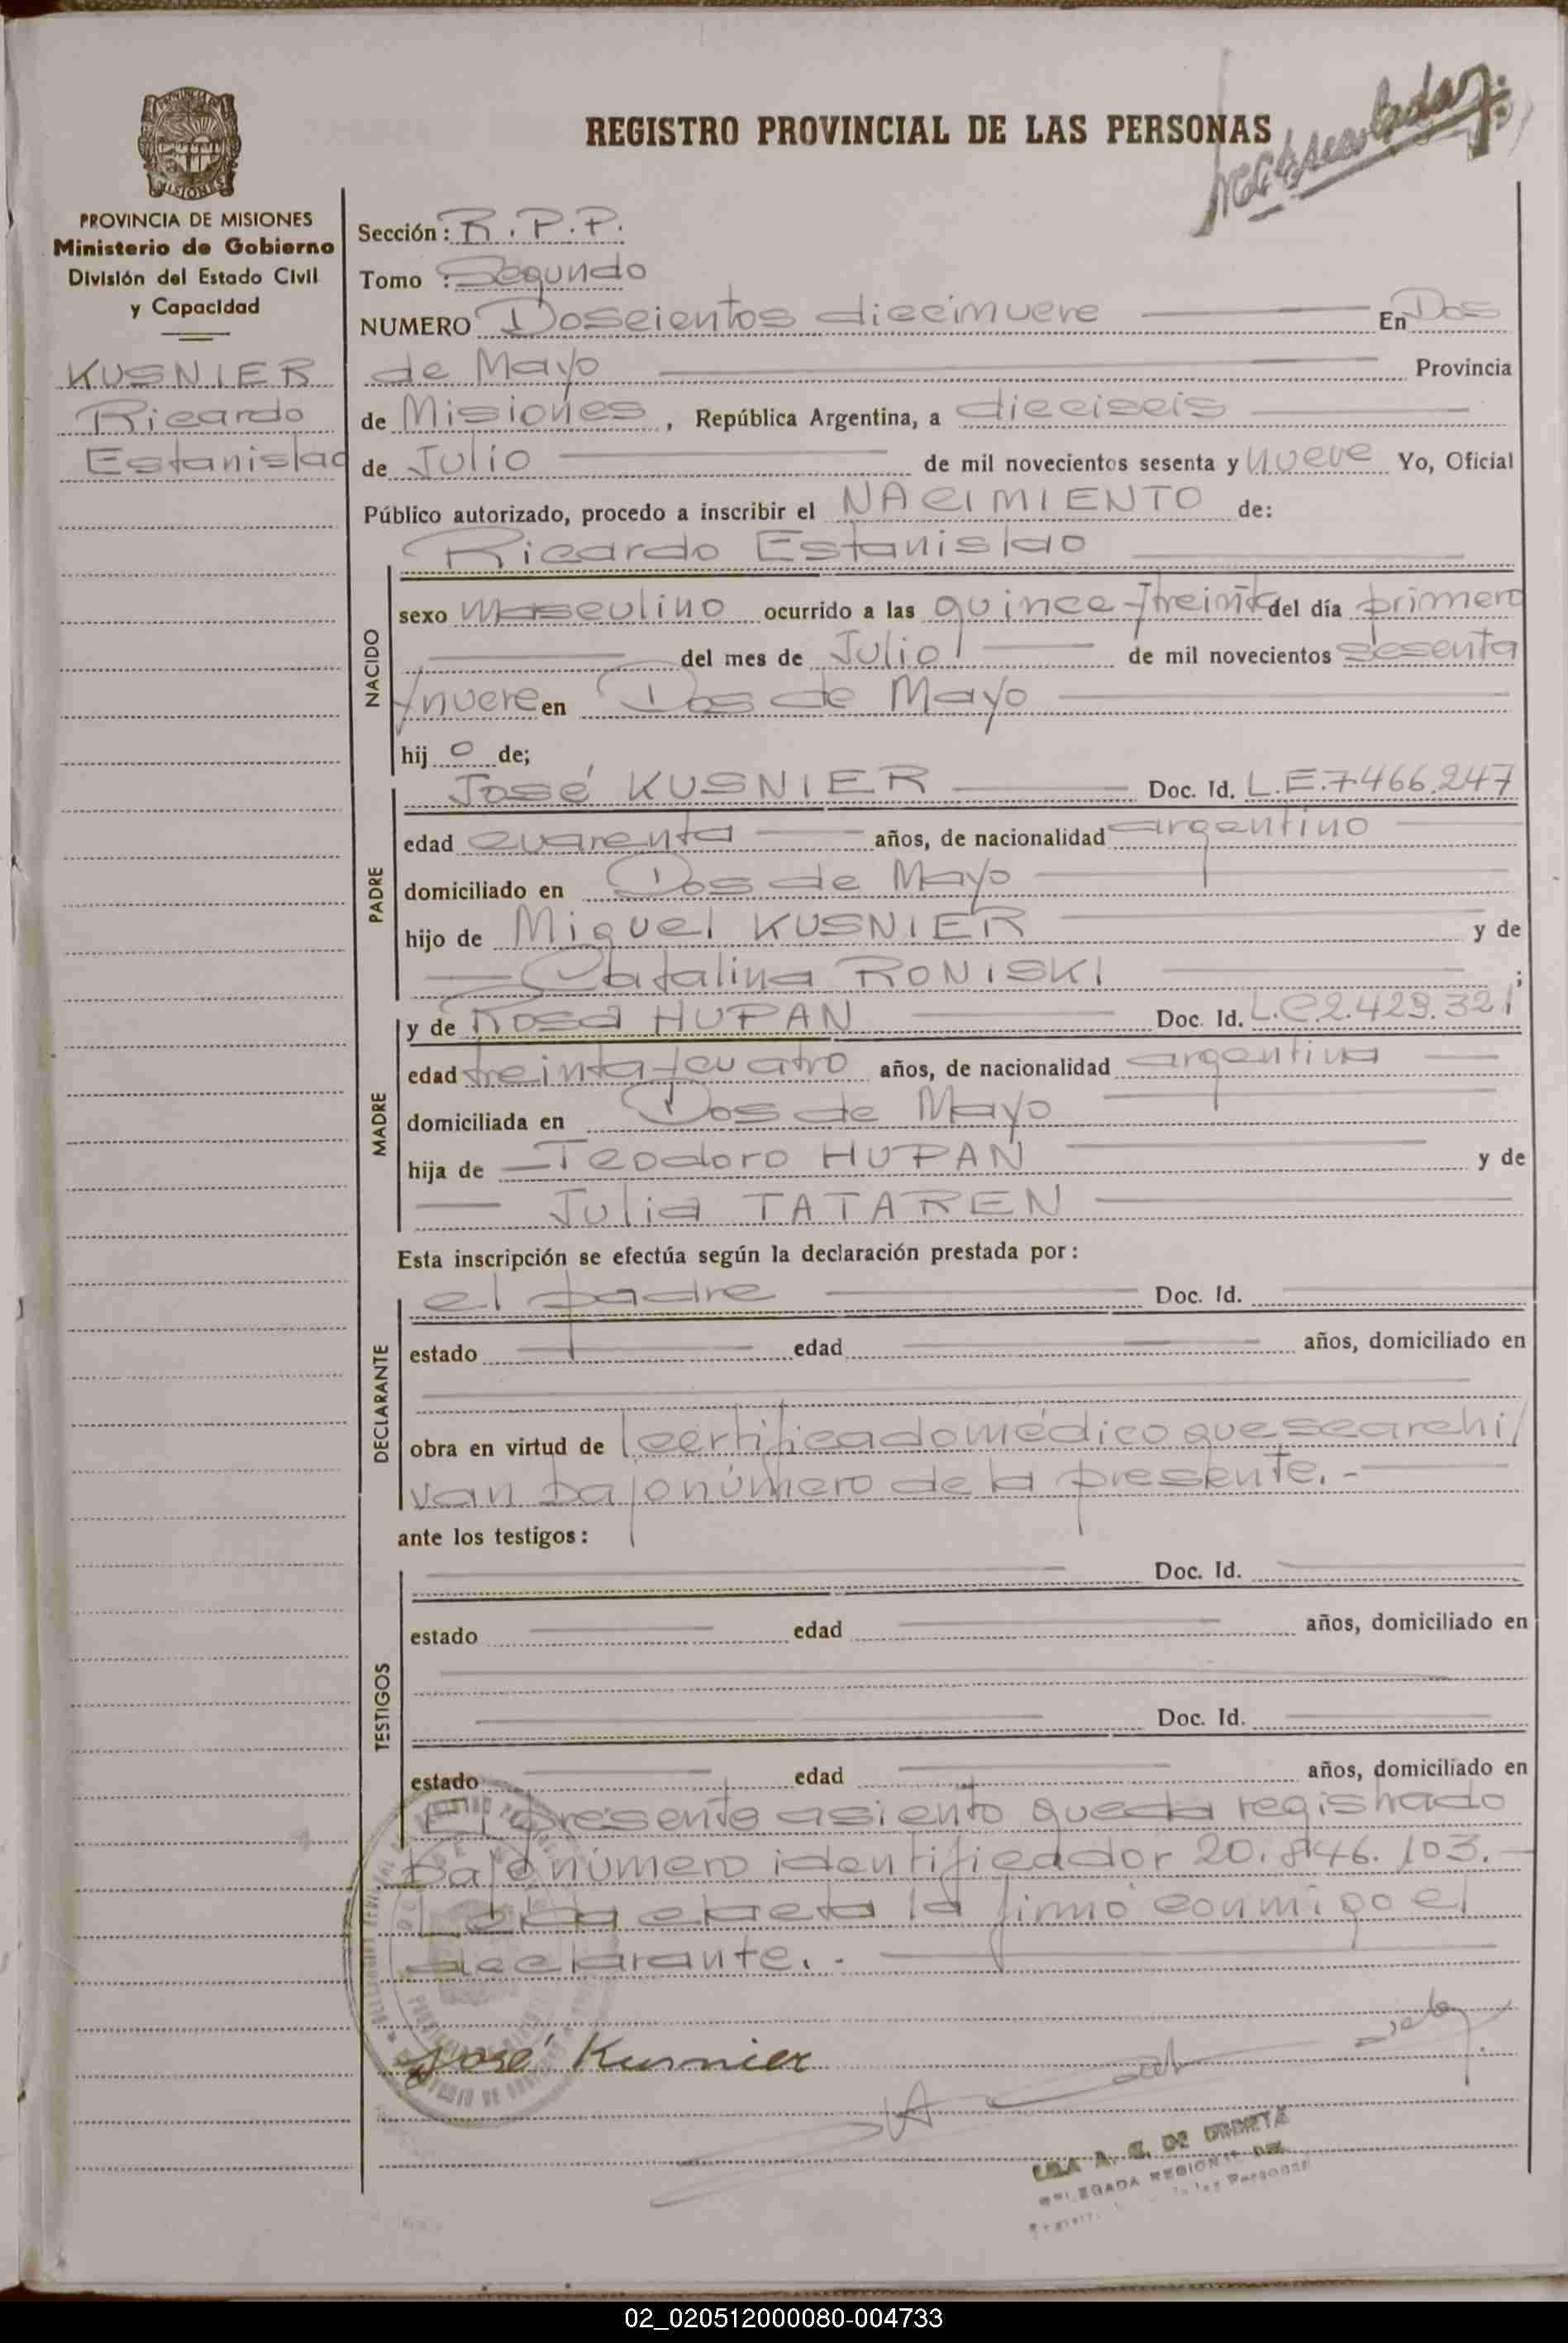 REGISTRO PROVINCIAL DE LAS PERSONAS
PROVINCIA DE MISIONES
Ministerio de Gobierno
División del Estado Civil
y Capacidad
KUSNIER
Ricardo
Estanislao
Sección: R.P.P.
Tomo : Segundo
NUMERO Doscientos diecinueve En Dos
de Mayo Provincia
de Misiones, República Argentina, a dieciseis
de Julio de mil novecientos sesenta y nueve Yo, Oficial
Público autorizado, procedo a inscribir el NACIMIENTO de:
Ricardo Estanislao
NACIDO
sexo masculino ocurrido a las quince y treinta del día primero
del mes de Julio de mil novecientos sesenta
y nueve en Dos de Mayo
hijo de;
PADRE
José KUSNIER Doc. Id. L.E.7466.247
edad cuarenta años, de nacionalidad argentino
domiciliado en Dos de Mayo
hijo de Miguel KUSNIER y de
Catalina RONISKI ;
MADRE
y de Rosa HUPAN Doc. Id. L.C.2.429.321
edad treinta y cuatro años, de nacionalidad argentina
domiciliada en Dos de Mayo
hija de Teodoro HUPAN y de
Julia TATAREN
Esta inscripción se efectúa según la declaración prestada por:
DECLARANTE
el padre Doc. Id.
estado edad años, domiciliado en
obra en virtud de certificado médico que se archi/
van bajo número de la presente.-
ante los testigos:
TESTIGOS
Doc. Id.
estado edad años, domiciliado en
Doc. Id.
estado edad años, domiciliado en
El presente asiento queda registrado
bajo número identificador 20.846.103.-
la firmó conmigo el
declarante.-
José Kusnier
A. DE
DELEGADA REGIONAL DEL
de las Personas
02_020512000080-004733